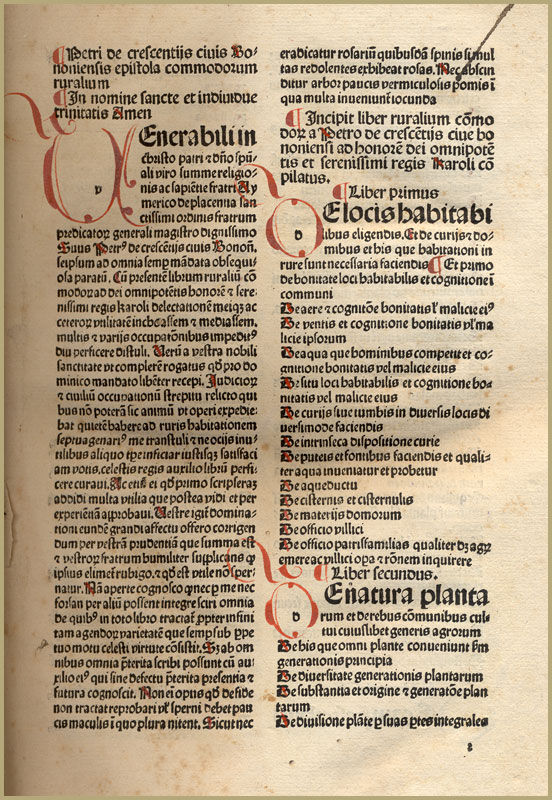 Petri de crescentijs ciuis Bo-
noniensis epistola commodorum
ruralium
In nomine sancte et indiuidue
trinitatis Amen
Enerabili in
christo patri ⁊ dño spũ-
ali viro summe religio-
nis ac sapiẽtie fratri Ay
merico de placentia san
ctissimi ordinis fratrum
predicatoꝝ generali magistro dignissimo
Suus Petrꝰ de crescẽtijs ciuis Bonoñ.
seipsum ad omnia semꝑ mãdata obsequi-
osa paratũ. Cũ presentẽ librum ruraliũ cõ
modoꝝ ad dei omnipotẽtis honorẽ ⁊ sere-
nissimi regis karoli delectationẽ meiqꝫ ac
ceteroꝝ vtilitatẽ inchoassem ⁊ mediassem.
multis ⁊ varijs occupatõnibus impeditꝰ
diu perficere distuli. Verũ a vestra nobili
sanctitate vt complerẽ rogatus qđ pro do
minico mandato libẽter recepi. Iudicioꝝ
⁊ ciuiliũ occupationũ strepitu relicto qui
bus nõ poterã sic animũ vt operi expedie-
bat quietẽ habere ad ruris habitationem
septuagenariꝰ me transtuli ⁊ ne ocijs inu-
tilibus aliquo tꝑe inficiar iustisqꝫ satisfaci
am votis. celestis regis auxilio librũ perfi-
cere curaui. Ac etiã ei qđ primo scripseraʒ
addidi multa vtilia que postea vidi et per
experiẽtiã aꝓbaui. Vestre igiť domina-
tioni eundẽ grandi affectu offero corrigen
dum per vestrã prudentiam que summa est
⁊ vestroꝝ fratrum humiliter supplicans ꝙ
ipsius elimeť rubigo. ⁊ qđ est vtile nõ sper-
natur. Nã aperte cognosco ꝙ nec ꝑ me nec
forsan per aliũ possent integre scri omnia
de quibꝰ in toto libro tractať ꝓpter infini
tam agendoꝝ varietatẽ que semꝑ sub ꝑpe
tuo motu celesti virtute cõsistit. Et ab om
nibus omnia p̃terita scribi possunt cũ au-
xilio eiꝰ qui sine defectu p̃terita presentia ⁊
futura cognoscit. Non eni opus qđ de fide
non tractat reprobari vľ sperni debet pau
cis maculis ĩ quo plura nitent. Sicut nec
eradicatur rosariũ quibusdã spinis simul
tas redolentes exhibeat rosas. Nec abscin
ditur arbor paucis vermiculosis pomis ĩ
qua multa inueniunť iocunda
Incipit liber ruralium cõmo
doꝝ a Petro de crescẽtijs ciue bo
noniensi ad honorẽ dei omnipotẽ
tis et serenissimi regis Karoli cõ
pilatus.
Liber primus
Elocis habitabi
libus eligendis. Et de curijs ⁊ do-
mibus et his que habitationi in
rure sunt necessaria faciendis Et primo
de bonitate loci habitabilis et cognitione ĩ
communi
De aere ⁊ cognitõe bonitatis ľ malicie eiꝰ
De ventis et cognitione bonitatis vľ ma
licie ipsorum
De aqua que hominibus competit et co-
gnitione bonitatis vel malicie eius
De situ loci habitabilis et cognitione bo-
nitatis vel malicie eius
De curijs siue tumbis in diuersis locis di
uersimode faciendis
De intrinseca dispositione curie
De puteis et fontibus faciendis et quali-
ter aqua inueniatur et probetur
De aqueductu
De cisternis et cisternulis
De materijs domorum
De officio villici
De officio patrisfamilias qualiter dʒ agꝝ
emere ac villici opa ⁊ rõnem inquirere
Liber secundus.
Enatura planta
rum et de rebus cõmunibus cul
tui cuiuslibet generis agrorum
De his que omni plante conueniunt ẜm
generationis principia
De diuersitate generationis plantarum
De substantia et origine ⁊ generatõne plan
tarum
De diuisione plãte ꝑ suas ꝑtes integrales